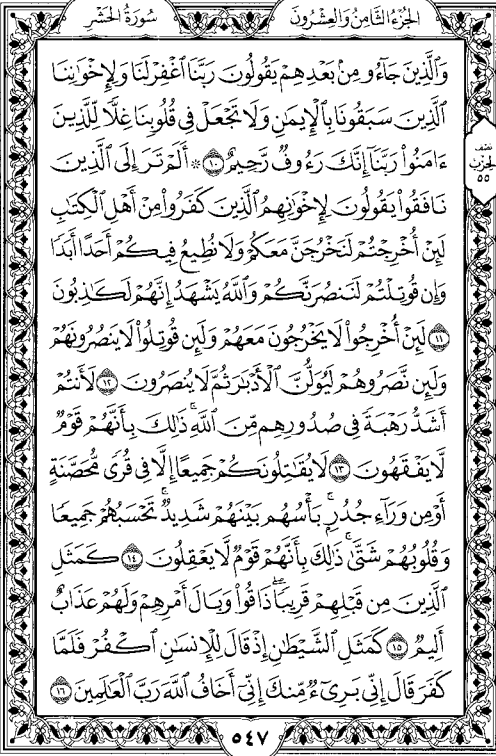 الجزء الثامن والعشرون
سورة الحشر
وَالَّذِينَ جَاءُو مِنْ بَعْدِهِمْ يَقُولُونَ رَبَّنَا اغْفِرْ لَنَا وَلِإِخْوَانِنَا
الَّذِينَ سَبَقُونَا بِالْإِيمَٰنِ وَلَا تَجْعَلْ فِي قُلُوبِنَا غِلًّا لِّلَّذِينَ
ءَامَنُوا رَبَّنَا إِنَّكَ رَءُوفٌ رَّحِيمٌ ١٠ ۞ أَلَمْ تَرَ إِلَى الَّذِينَ
نَافَقُوا يَقُولُونَ لِإِخْوَٰنِهِمُ الَّذِينَ كَفَرُوا مِنْ أَهْلِ الْكِتَٰبِ
لَئِنْ أُخْرِجْتُمْ لَنَخْرُجَنَّ مَعَكُمْ وَلَا نُطِيعُ فِيكُمْ أَحَدًا أَبَدًا
وَإِن قُوتِلْتُمْ لَنَنصُرَنَّكُمْ وَاللَّهُ يَشْهَدُ إِنَّهُمْ لَكَٰذِبُونَ
١١ لَئِنْ أُخْرِجُوا لَا يَخْرُجُونَ مَعَهُمْ وَلَئِن قُوتِلُوا لَا يَنصُرُونَهُمْ
وَلَئِن نَّصَرُوهُمْ لَيُوَلُّنَّ الْأَدْبَٰرَ ثُمَّ لَا يُنصَرُونَ ١٢ لَأَنتُمْ
أَشَدُّ رَهْبَةً فِي صُدُورِهِم مِّنَ اللَّهِ ۚ ذَٰلِكَ بِأَنَّهُمْ قَوْمٌ
لَّا يَفْقَهُونَ ١٣ لَا يُقَٰتِلُونَكُمْ جَمِيعًا إِلَّا فِي قُرًى مُّحَصَّنَةٍ
أَوْ مِن وَرَاءِ جُدُرٍ ۚ بَأْسُهُم بَيْنَهُمْ شَدِيدٌ ۚ تَحْسَبُهُمْ جَمِيعًا
وَقُلُوبُهُمْ شَتَّىٰ ۚ ذَٰلِكَ بِأَنَّهُمْ قَوْمٌ لَّا يَعْقِلُونَ ١٤ كَمَثَلِ
الَّذِينَ مِن قَبْلِهِمْ قَرِيبًا ۖ ذَاقُوا وَبَالَ أَمْرِهِمْ وَلَهُمْ عَذَابٌ
أَلِيمٌ ١٥ كَمَثَلِ الشَّيْطَٰنِ إِذْ قَالَ لِلْإِنسَٰنِ اكْفُرْ فَلَمَّا
كَفَرَ قَالَ إِنِّي بَرِيءٌ مِّنكَ إِنِّي أَخَافُ اللَّهَ رَبَّ الْعَٰلَمِينَ ١٦
نصف
الحزب
٥٥
٥٤٧